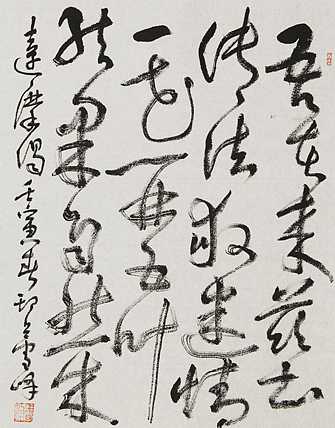 吾本来兹土
传法救迷情
一花开五叶
结果自然成
達摩偈 壬寅春 雪峰